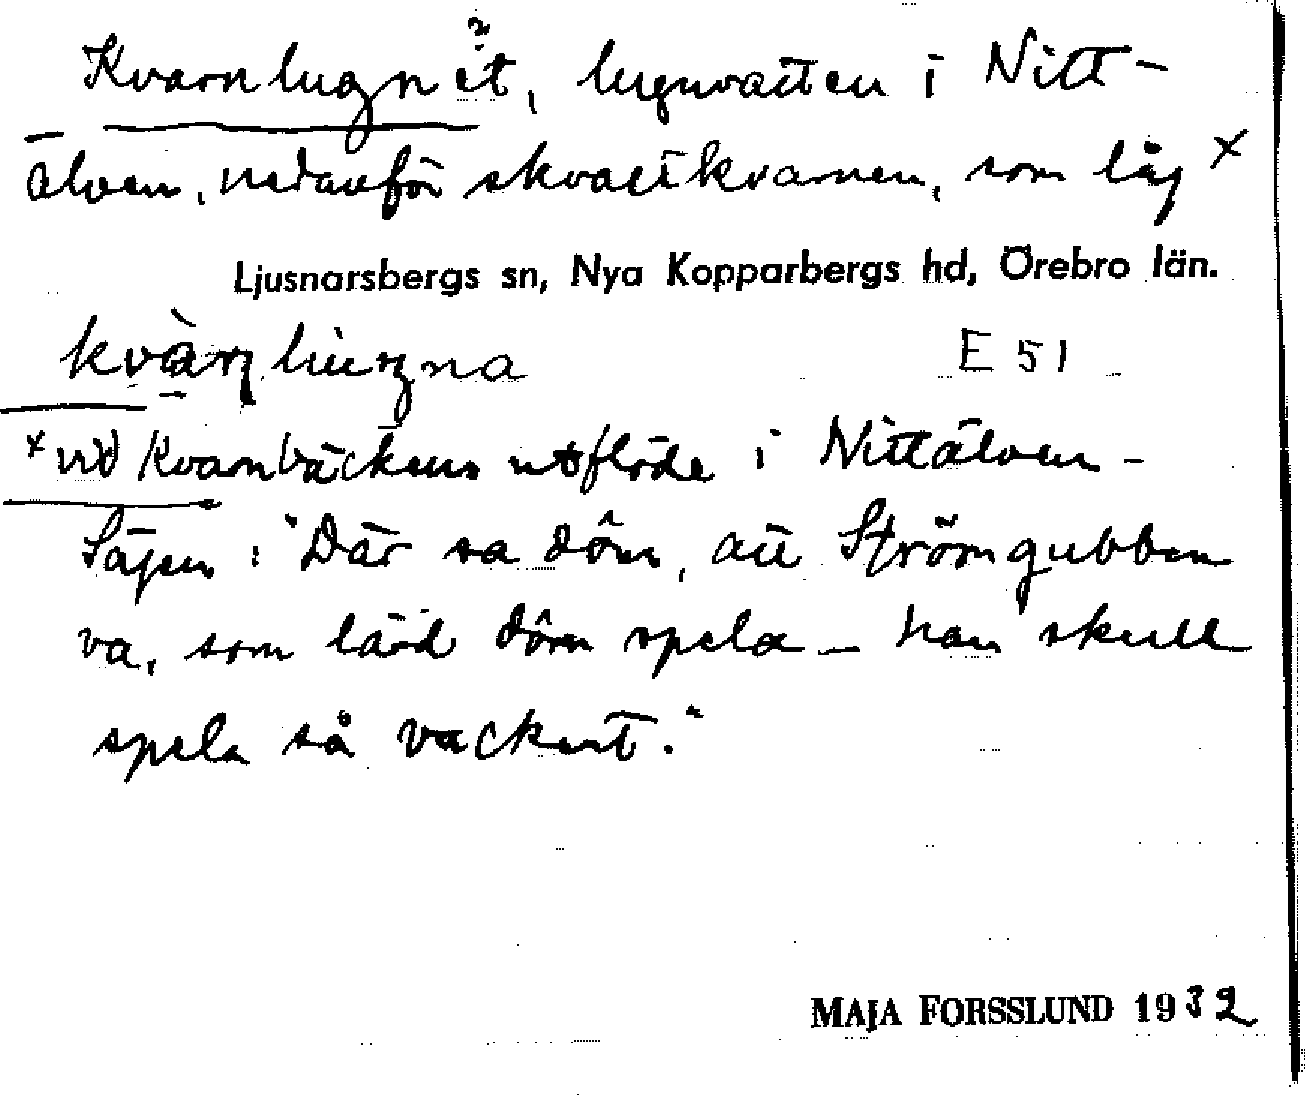 Kvarnlugnet, lugnvatten i Nitt-
älven, nedanför skvaltkvarnen, som låg x
Ljusnarsbergs sn, Nya Kopparbergs hd, Örebro län.
E 51
x vid Kvarnbäckens utflöde i Nittälven -
Sägen: "Där sa dôm, att Strömgubben
va, som lärd dôm spela - han skull
spela så vackert."
MAJA FORSSLUND 1932